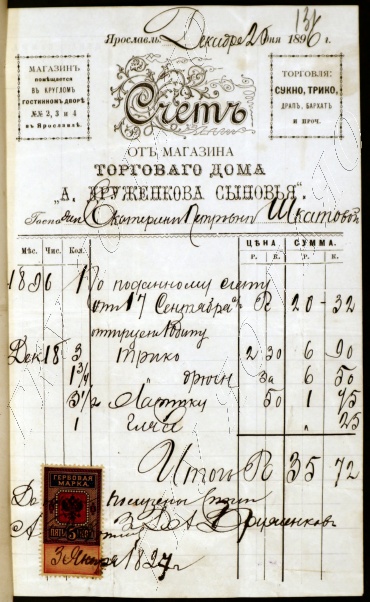 136
Ярославль, Декабря 25 дня 1896 г.
МАГАЗИНЪ
помѣщается
ВЪ КРУГЛОМЪ
ГОСТИННОМЪ ДВОРѢ
№№ 2, 3 и 4
въ Ярославлѣ.
Счетъ
ТОРГОВЛЯ:
СУКНО, ТРИКО,
ДРАПЪ, БАРХАТЪ
И ПРОЧ.
ОТЪ МАГАЗИНА
ТОРГОВАГО ДОМА
„А. ДРУЖЕНКОВА СЫНОВЬЯ".
Госпожи Екатерины Петровны Шкатовой
Мѣс. Чис. Кол. ЦѢНА. СУММА.
Р. К. Р. К.
1896 1 По поданному счету
от 17 Сентября R 20 - 32
Дек 18 3 трико 2 30 6 90
1 3/4 6 50
3 1/2 50 1 75
1 25
Итого R 35 72
ГЕРБОВАЯ
МАРКА.
ПЯТЬ 5 КОП.
Получены
А Друженков
3 Января 1897 г